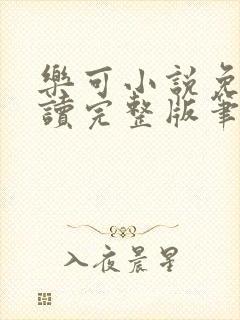 樂可小說免
讀完整版筆
入夜晨星